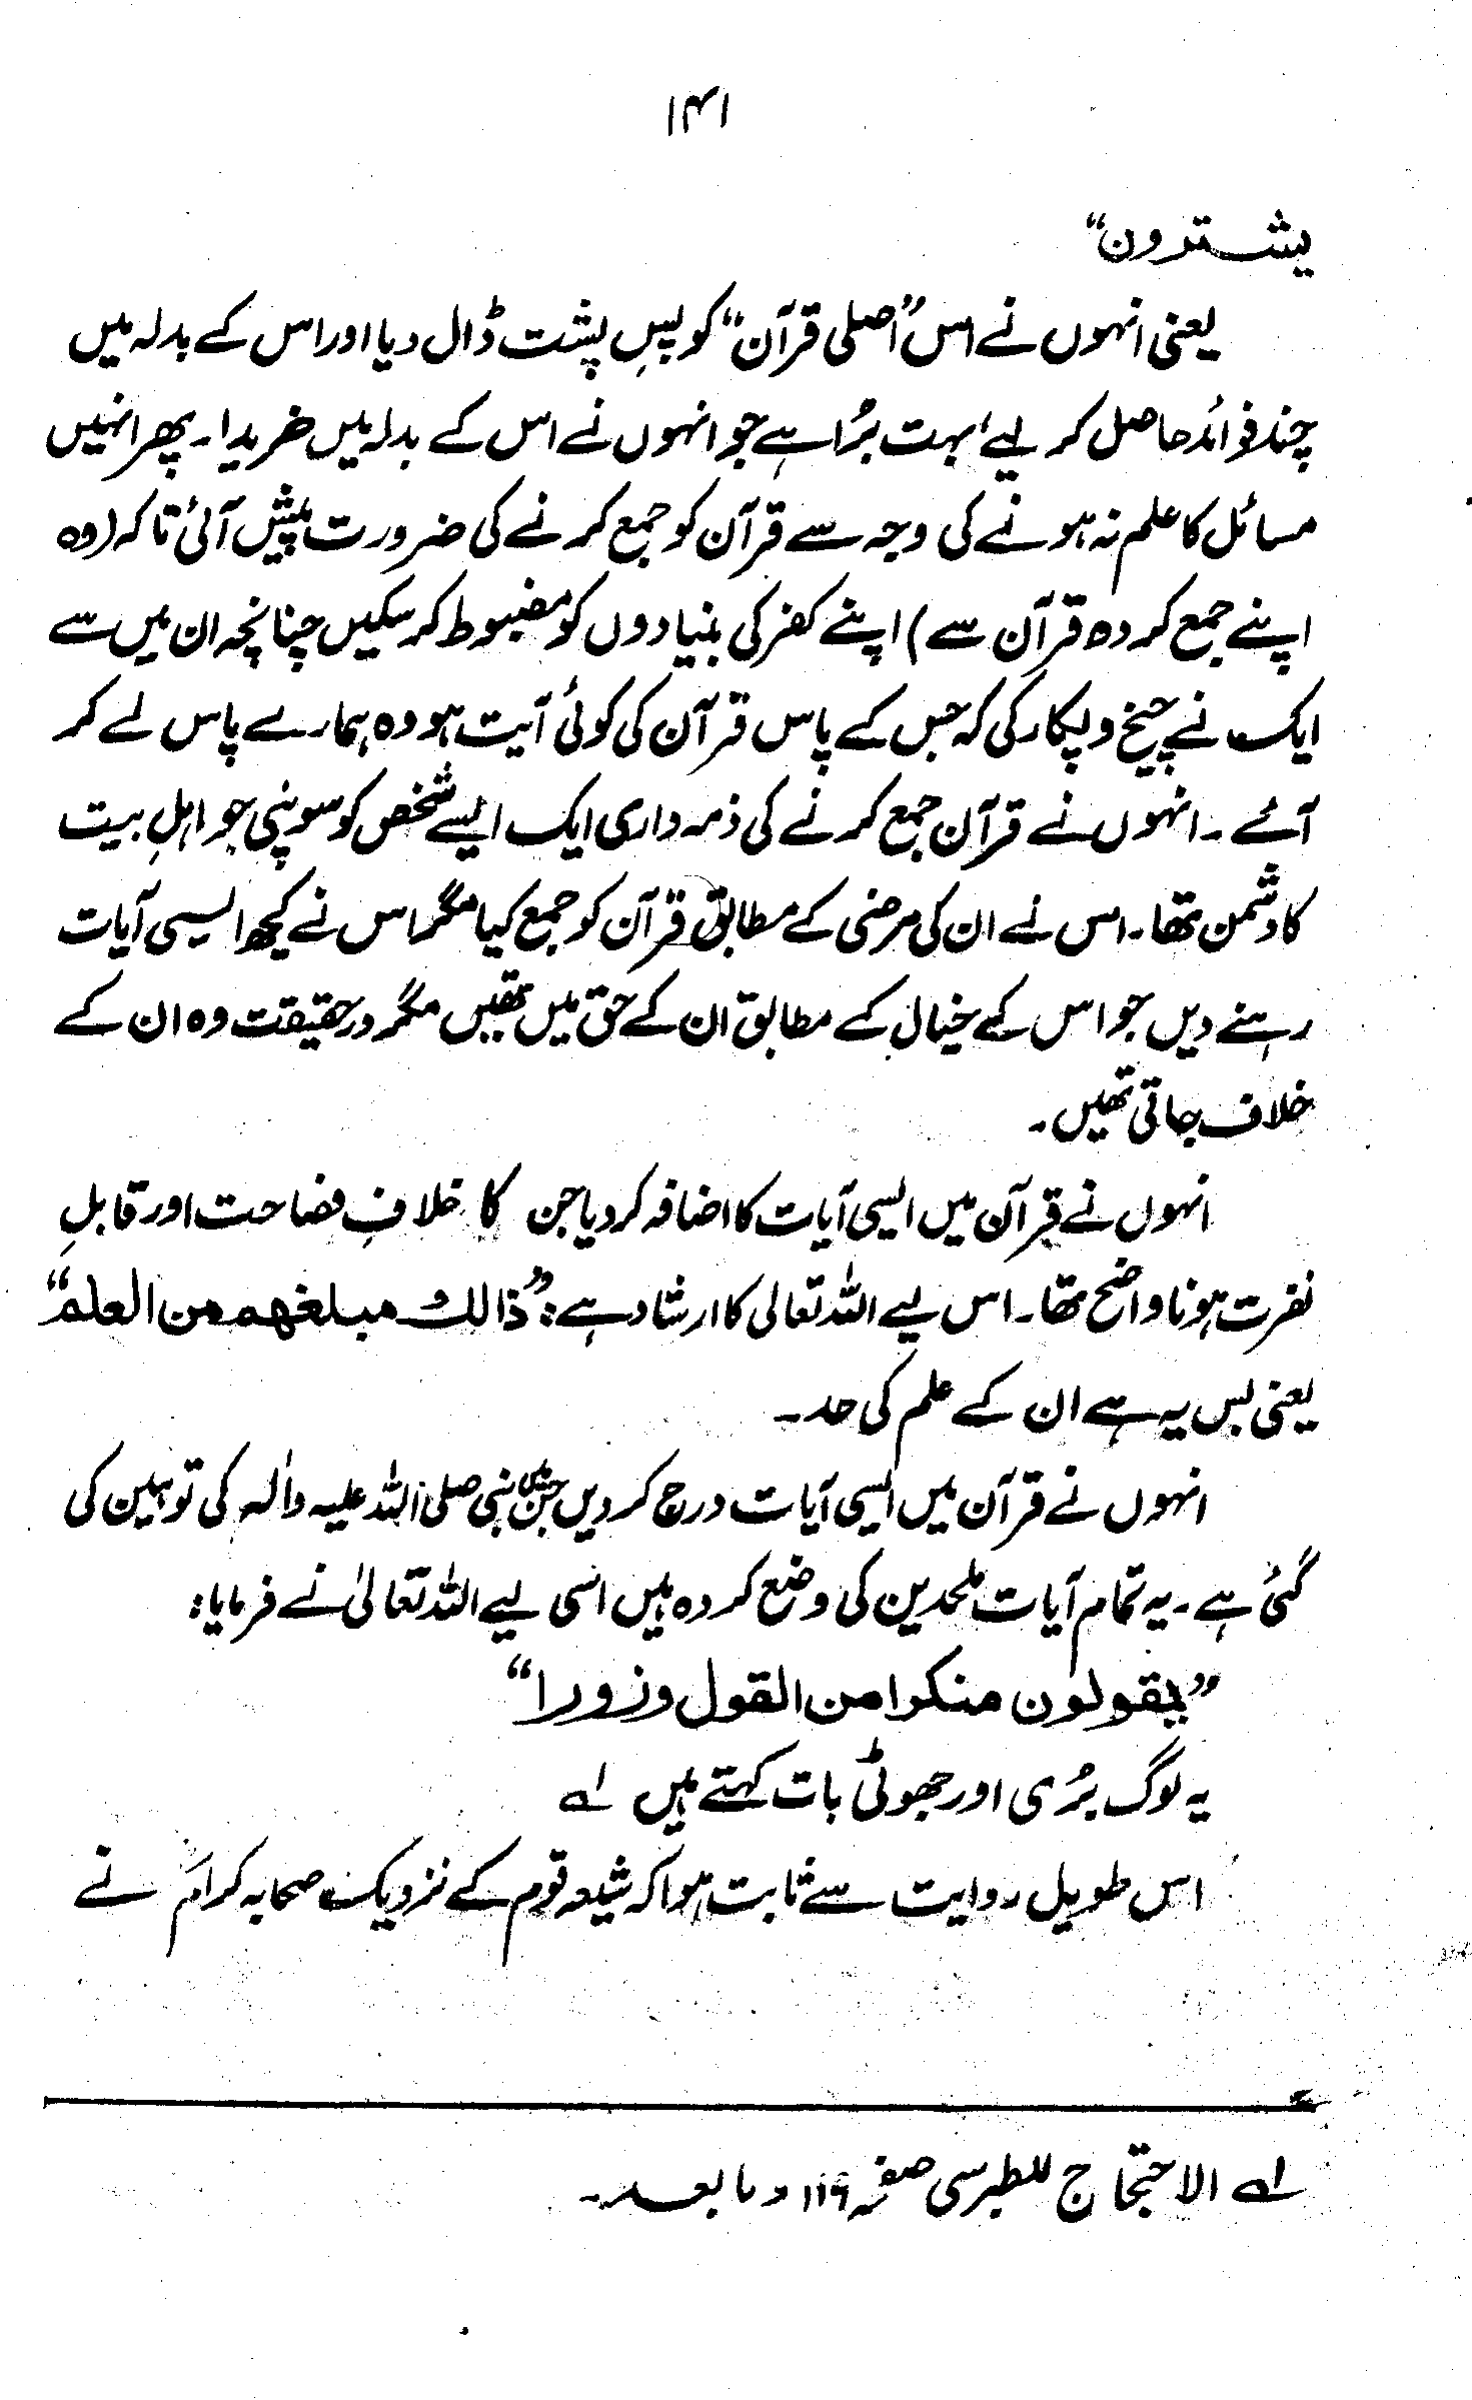 ۱۴۱
یشترون“
یعنی انہوں نے اس ”اصلی قرآن“ کو پسِ پشت ڈال دیا اور اس کے بدلہ میں
چند فوائد حاصل کر لیے ‘ بہت بُرا ہے جو انہوں نے اس کے بدلہ میں خریدا۔ پھر انہیں
مسائل کا علم نہ ہونے کی وجہ سے قرآن کو جمع کرنے کی ضرورت پیش آئی تاکہ (وہ
اپنے جمع کردہ قرآن سے) اپنے کفر کی بنیادوں کو مضبوط کر سکیں چنانچہ ان میں سے
ایک نے چیخ و پکار کی کہ جس کے پاس قرآن کی کوئی آیت ہو وہ ہمارے پاس لے کر
آئے ۔ انہوں نے قرآن جمع کرنے کی ذمہ داری ایک ایسے شخص کو سونپی جو اہلِ بیت
کا دشمن تھا۔ اس نے ان کی مرضی کے مطابق قرآن کو جمع کیا مگر اس نے کچھ ایسی آیات
رہنے دیں جو اس کے خیال کے مطابق ان کے حق میں تھیں مگر درحقیقت وہ ان کے
خلاف جاتی تھیں ۔
انہوں نے قرآن میں ایسی آیات کا اضافہ کر دیا جن کا خلافِ فصاحت اور قابلِ
نفرت ہونا واضح تھا۔ اس لیے اللہ تعالی کا ارشاد ہے : ”ذالك مبلغهم من العلم“
یعنی بس یہ ہے ان کے علم کی حد ۔
انہوں نے قرآن میں ایسی آیات درج کر دیں جن میں نبی صلی اللہ علیہ وآلہ کی توہین کی
گئی ہے ۔ یہ تمام آیات ملحدین کی وضع کردہ ہیں اسی لیے اللہ تعالیٰ نے فرمایا:
”یقولون منکرا من القول وزورا“
یہ لوگ بُری اور جھوٹی بات کہتے ہیں ۱ے
اس طویل روایت سے ثابت ہوا کہ شیعہ قوم کے نزدیک صحابہ کرامؓ نے
۱ے الاحتجاج للطبرسی صفحہ ۱۱۹ و ما بعد ۔